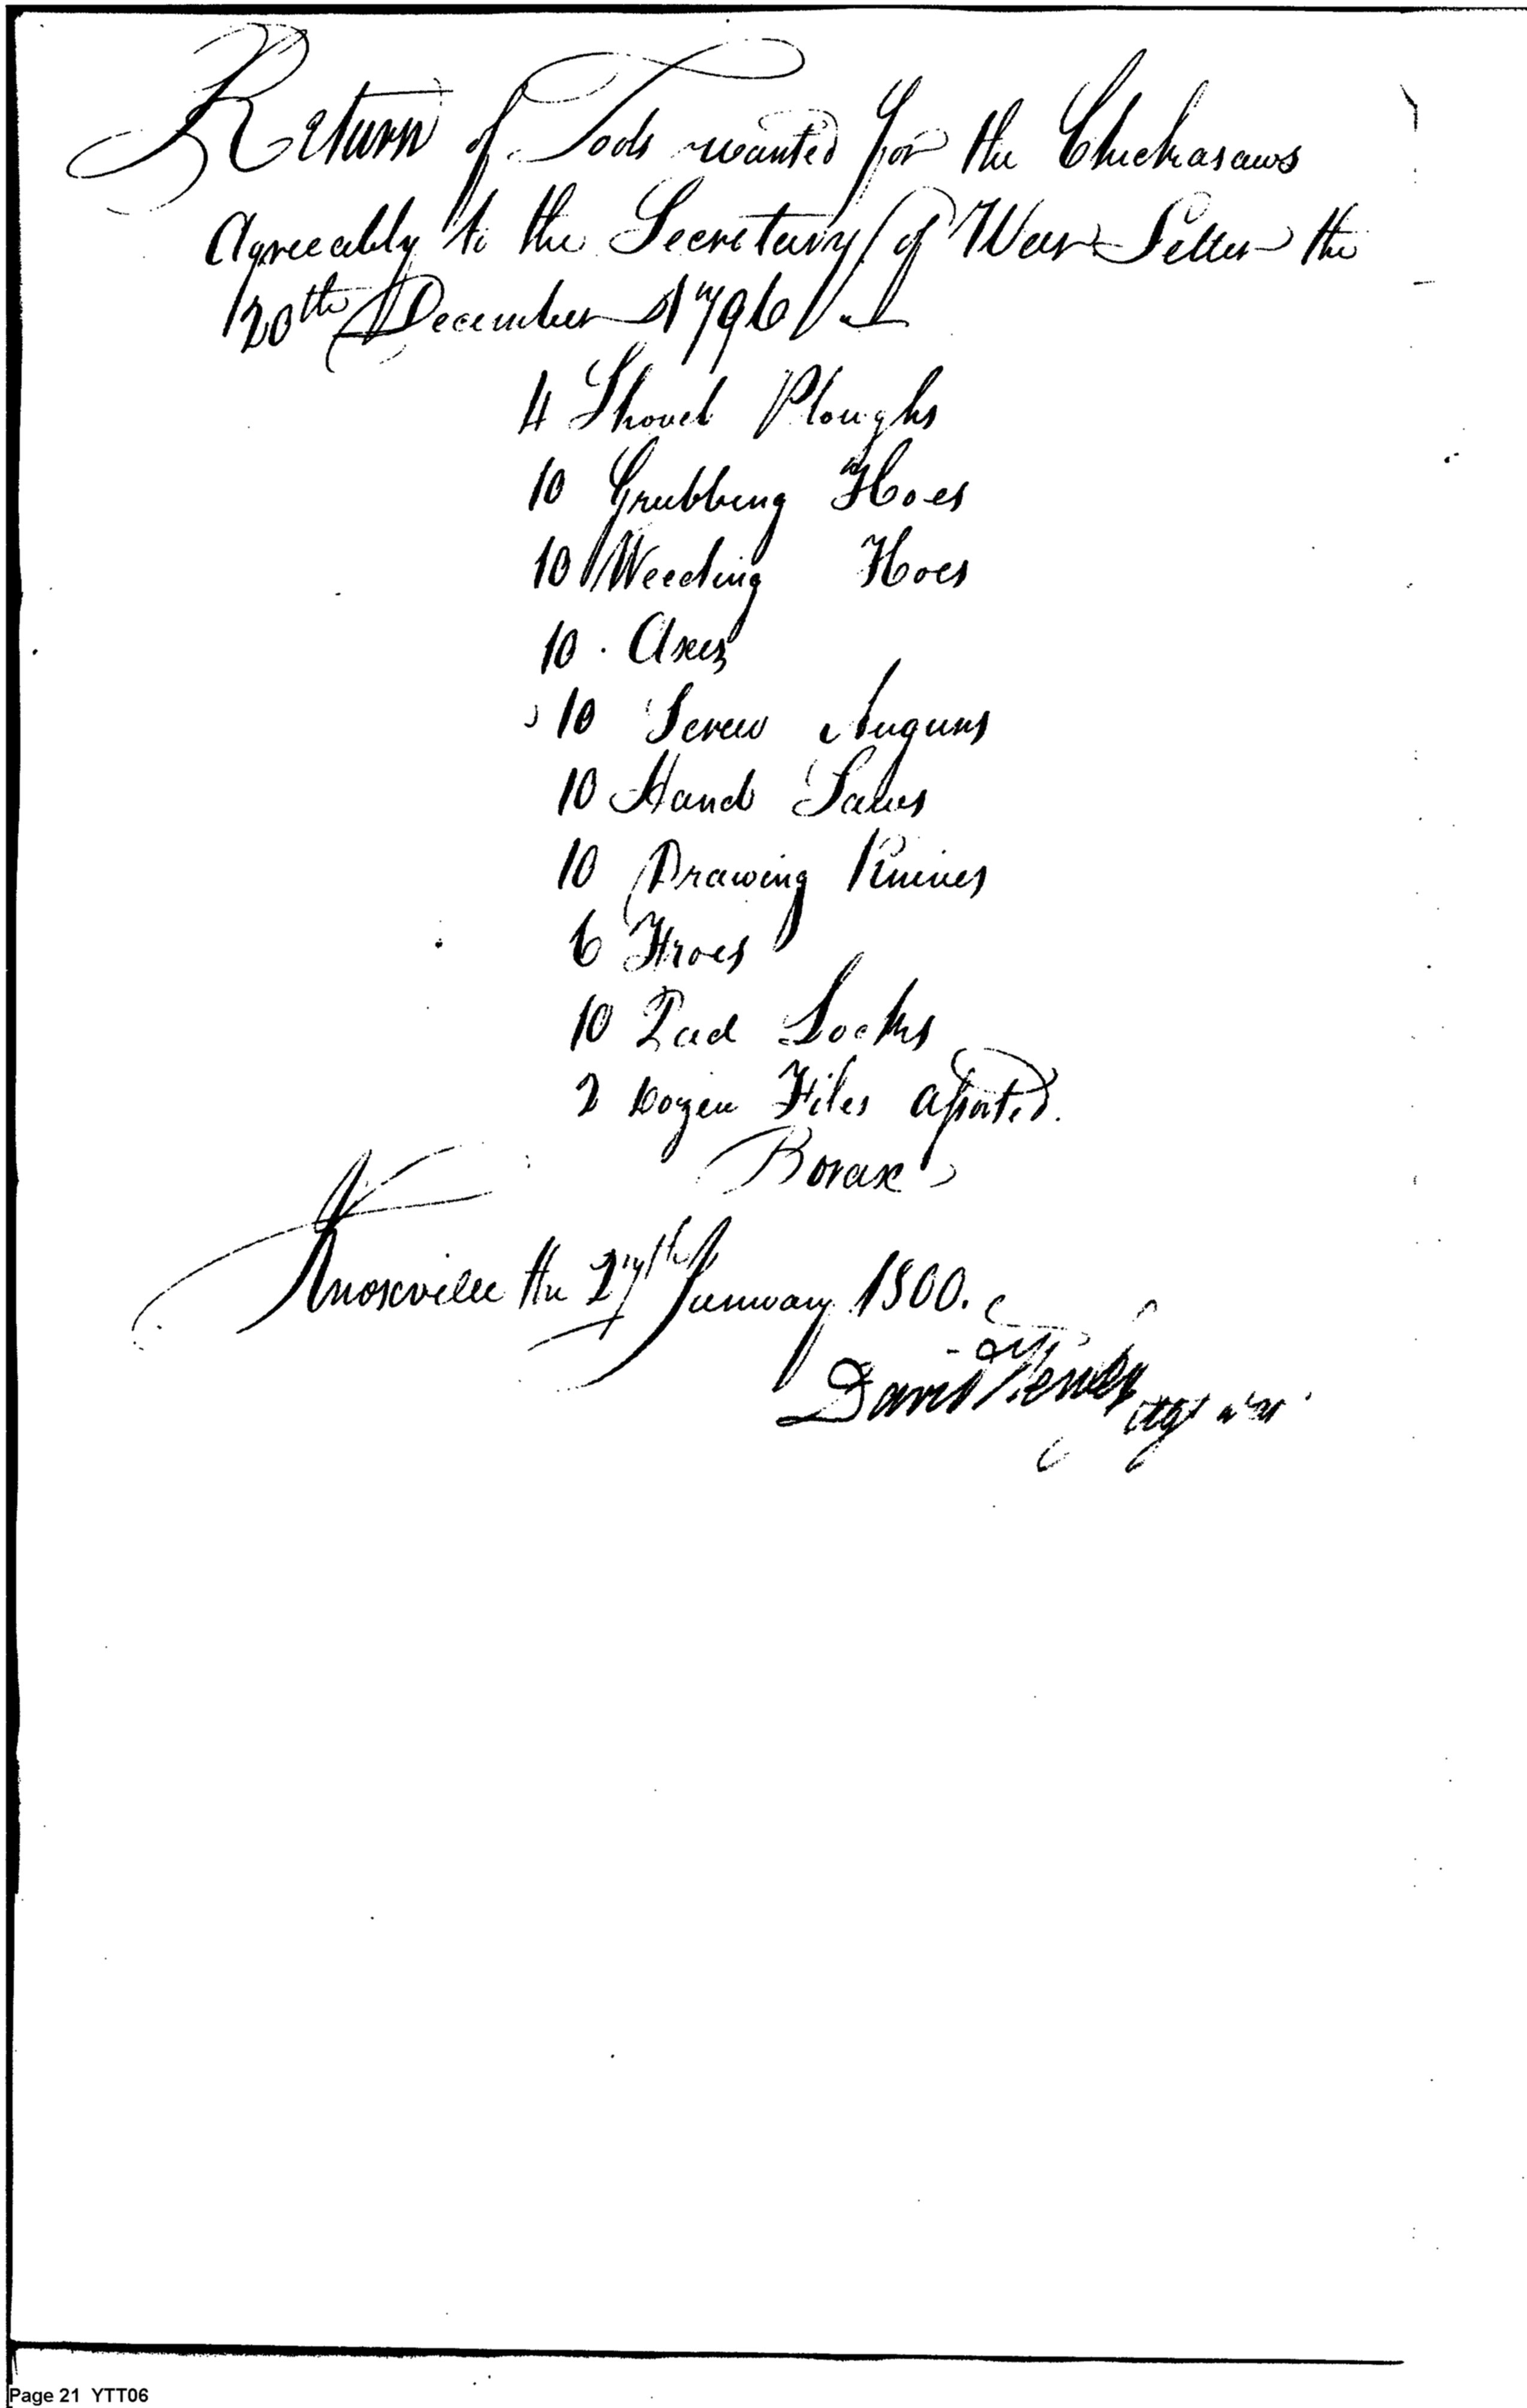 Return of Tools wanted for the Chickasaws
Agreeably to the Secretary of War Letter the
20th December 1796
4 Shovel Ploughs
10 Grubbing Hoes
10 Weeding Hoes
10 Axes
10 Screw Augurs
10 Hand Saws
10 Drawing Knives
6 Froes
10 Pad Locks
2 Dozen Files assorted.
Borax
Knoxville the 27th January 1800.
David Henley agt
Page 21 YTT06